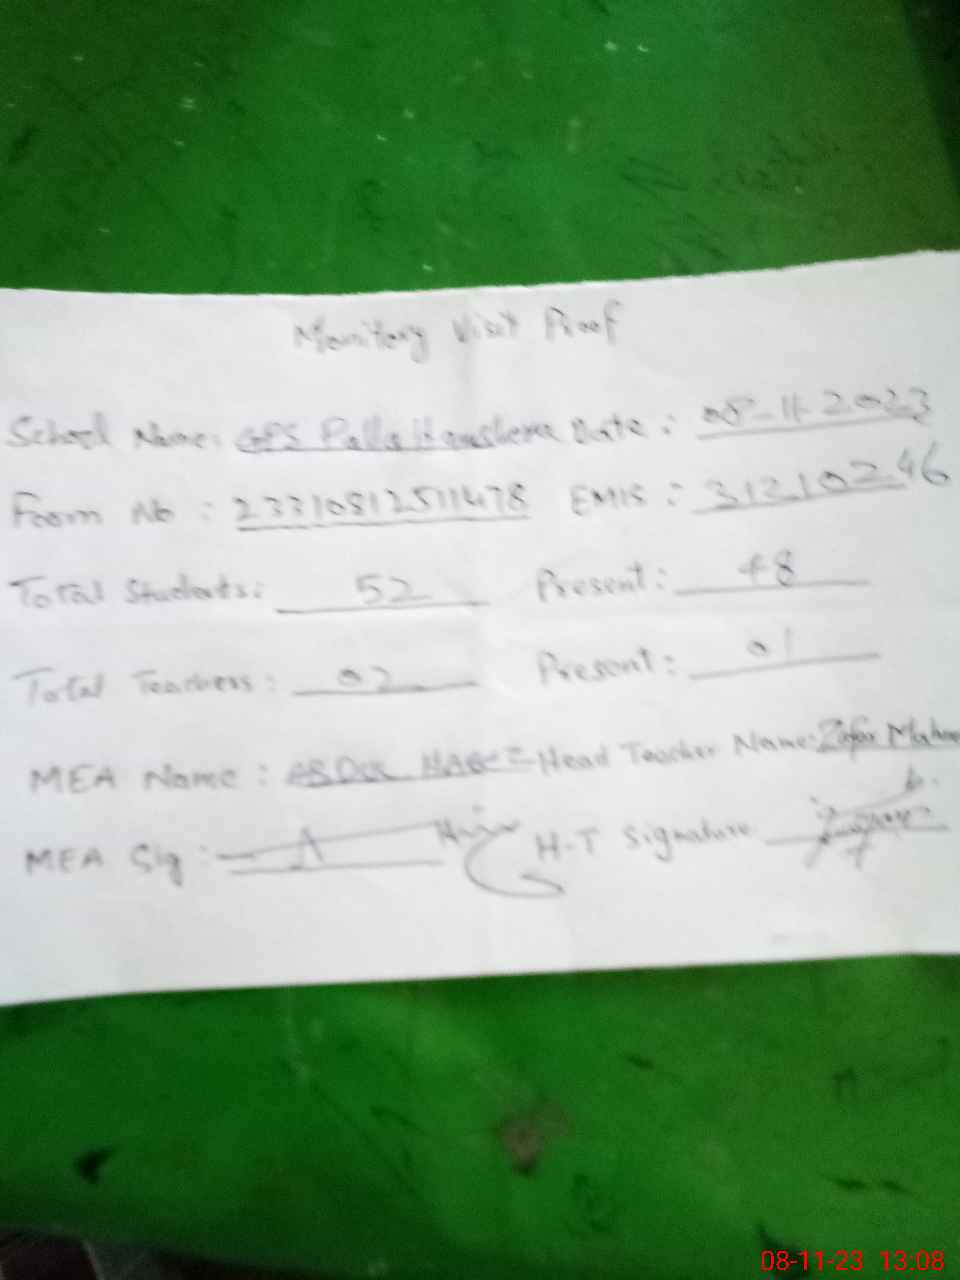 Monitory Visit Proof
School Name: GPS Palla Date: 08-11-2023
Foorm No : 23310812511478 EMIS : 31210246
Total Students: 52 Present: 48
Total Teachers: 02 Present: 01
MEA Name : Head Teacher Name: Zafar
MEA Sig : H-T Signature
08-11-23 13:08